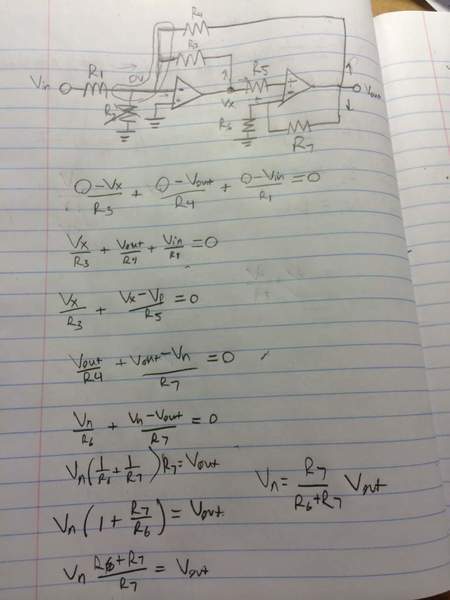 R4
R3
R1 0V
R5
Vin
Vx
Vout
R2
R6
R7
0-Vx/R3 + 0-Vout/R4 + 0-Vin/R1 = 0
Vx/R3 + Vout/R4 + Vin/R1 = 0
Vx/R3 + Vx-Vp/R5 = 0
Vout/R4 + Vout-Vn/R7 = 0
Vn/R6 + Vn-Vout/R7 = 0
Vn(1/R6 + 1/R7)R7 = Vout
Vn = R7/R6+R7 Vout
Vn(1 + R7/R6) = Vout
Vn R6+R7/R7 = Vout